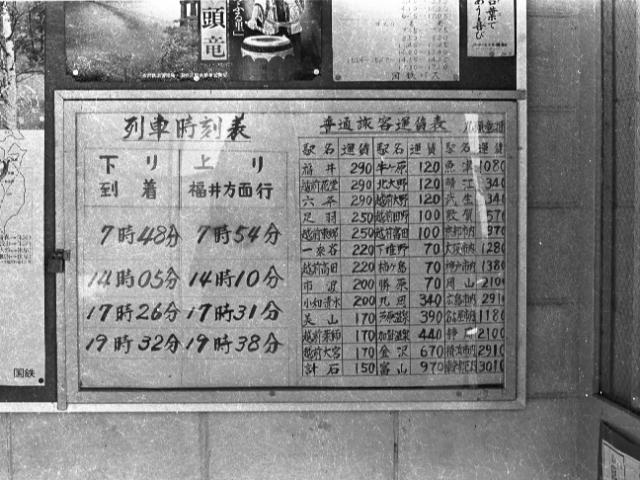 頭竜
国鉄バス
列車時刻表
下り 上り
到着 福井方面行
7時48分 7時54分
14時05分 14時10分
17時26分 17時31分
19時32分 19時38分
普通旅客運賃表
駅名 運賃 駅名 運賃 駅名 運賃
福井 290 牛ヶ原 120 魚津 1080
越前花堂 290 北大野 120 鯖江 340
六条 290 越前大野 120 武生
足羽 250 越前田野 100 敦賀 570
越前東郷 250 越前富田 100 京都市内 970
一乗谷 220 下唯野 70 大阪市内 1280
越前高田 220 柿ヶ島 70 神戸市内 1380
市波 200 勝原 70 岡山 2100
小和清水 200 丸岡 340 広島市内 291
美山 170 芦原温泉 390 名古屋市内 1180
越前薬師 170 加賀温泉 440 静岡 2100
越前大宮 170 金沢 670 横浜市内 2910
計石 150 富山 970 3010
国鉄